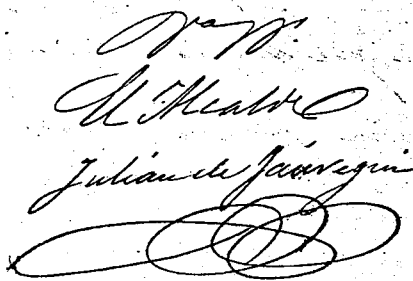 El Alcalde
Julián de Jáuregui